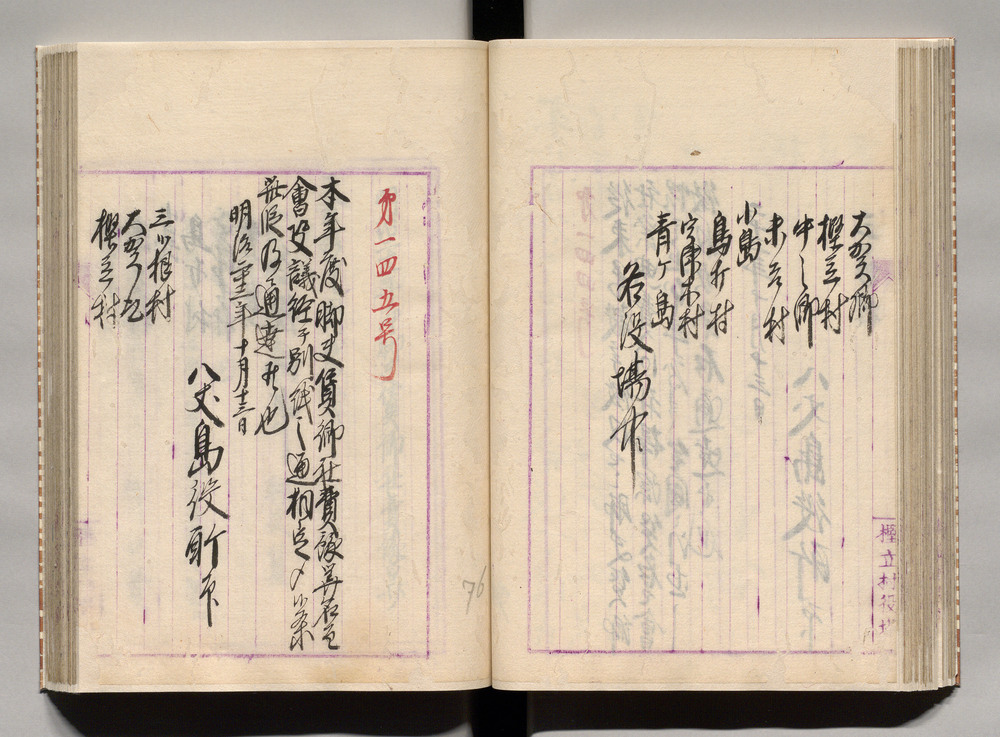 大賀郷
樫立村
中之郷
末吉村
小島
鳥打村
宇津木村
青ヶ島
各役場中
樫立村役場
第一四五号
本年度脚夫賃郷社費
會決議経テ別紙之通相定メ候条
此段及通達候也
明治 年十月十三日
八丈島役所
三ツ根村
大賀郷
樫立村
76